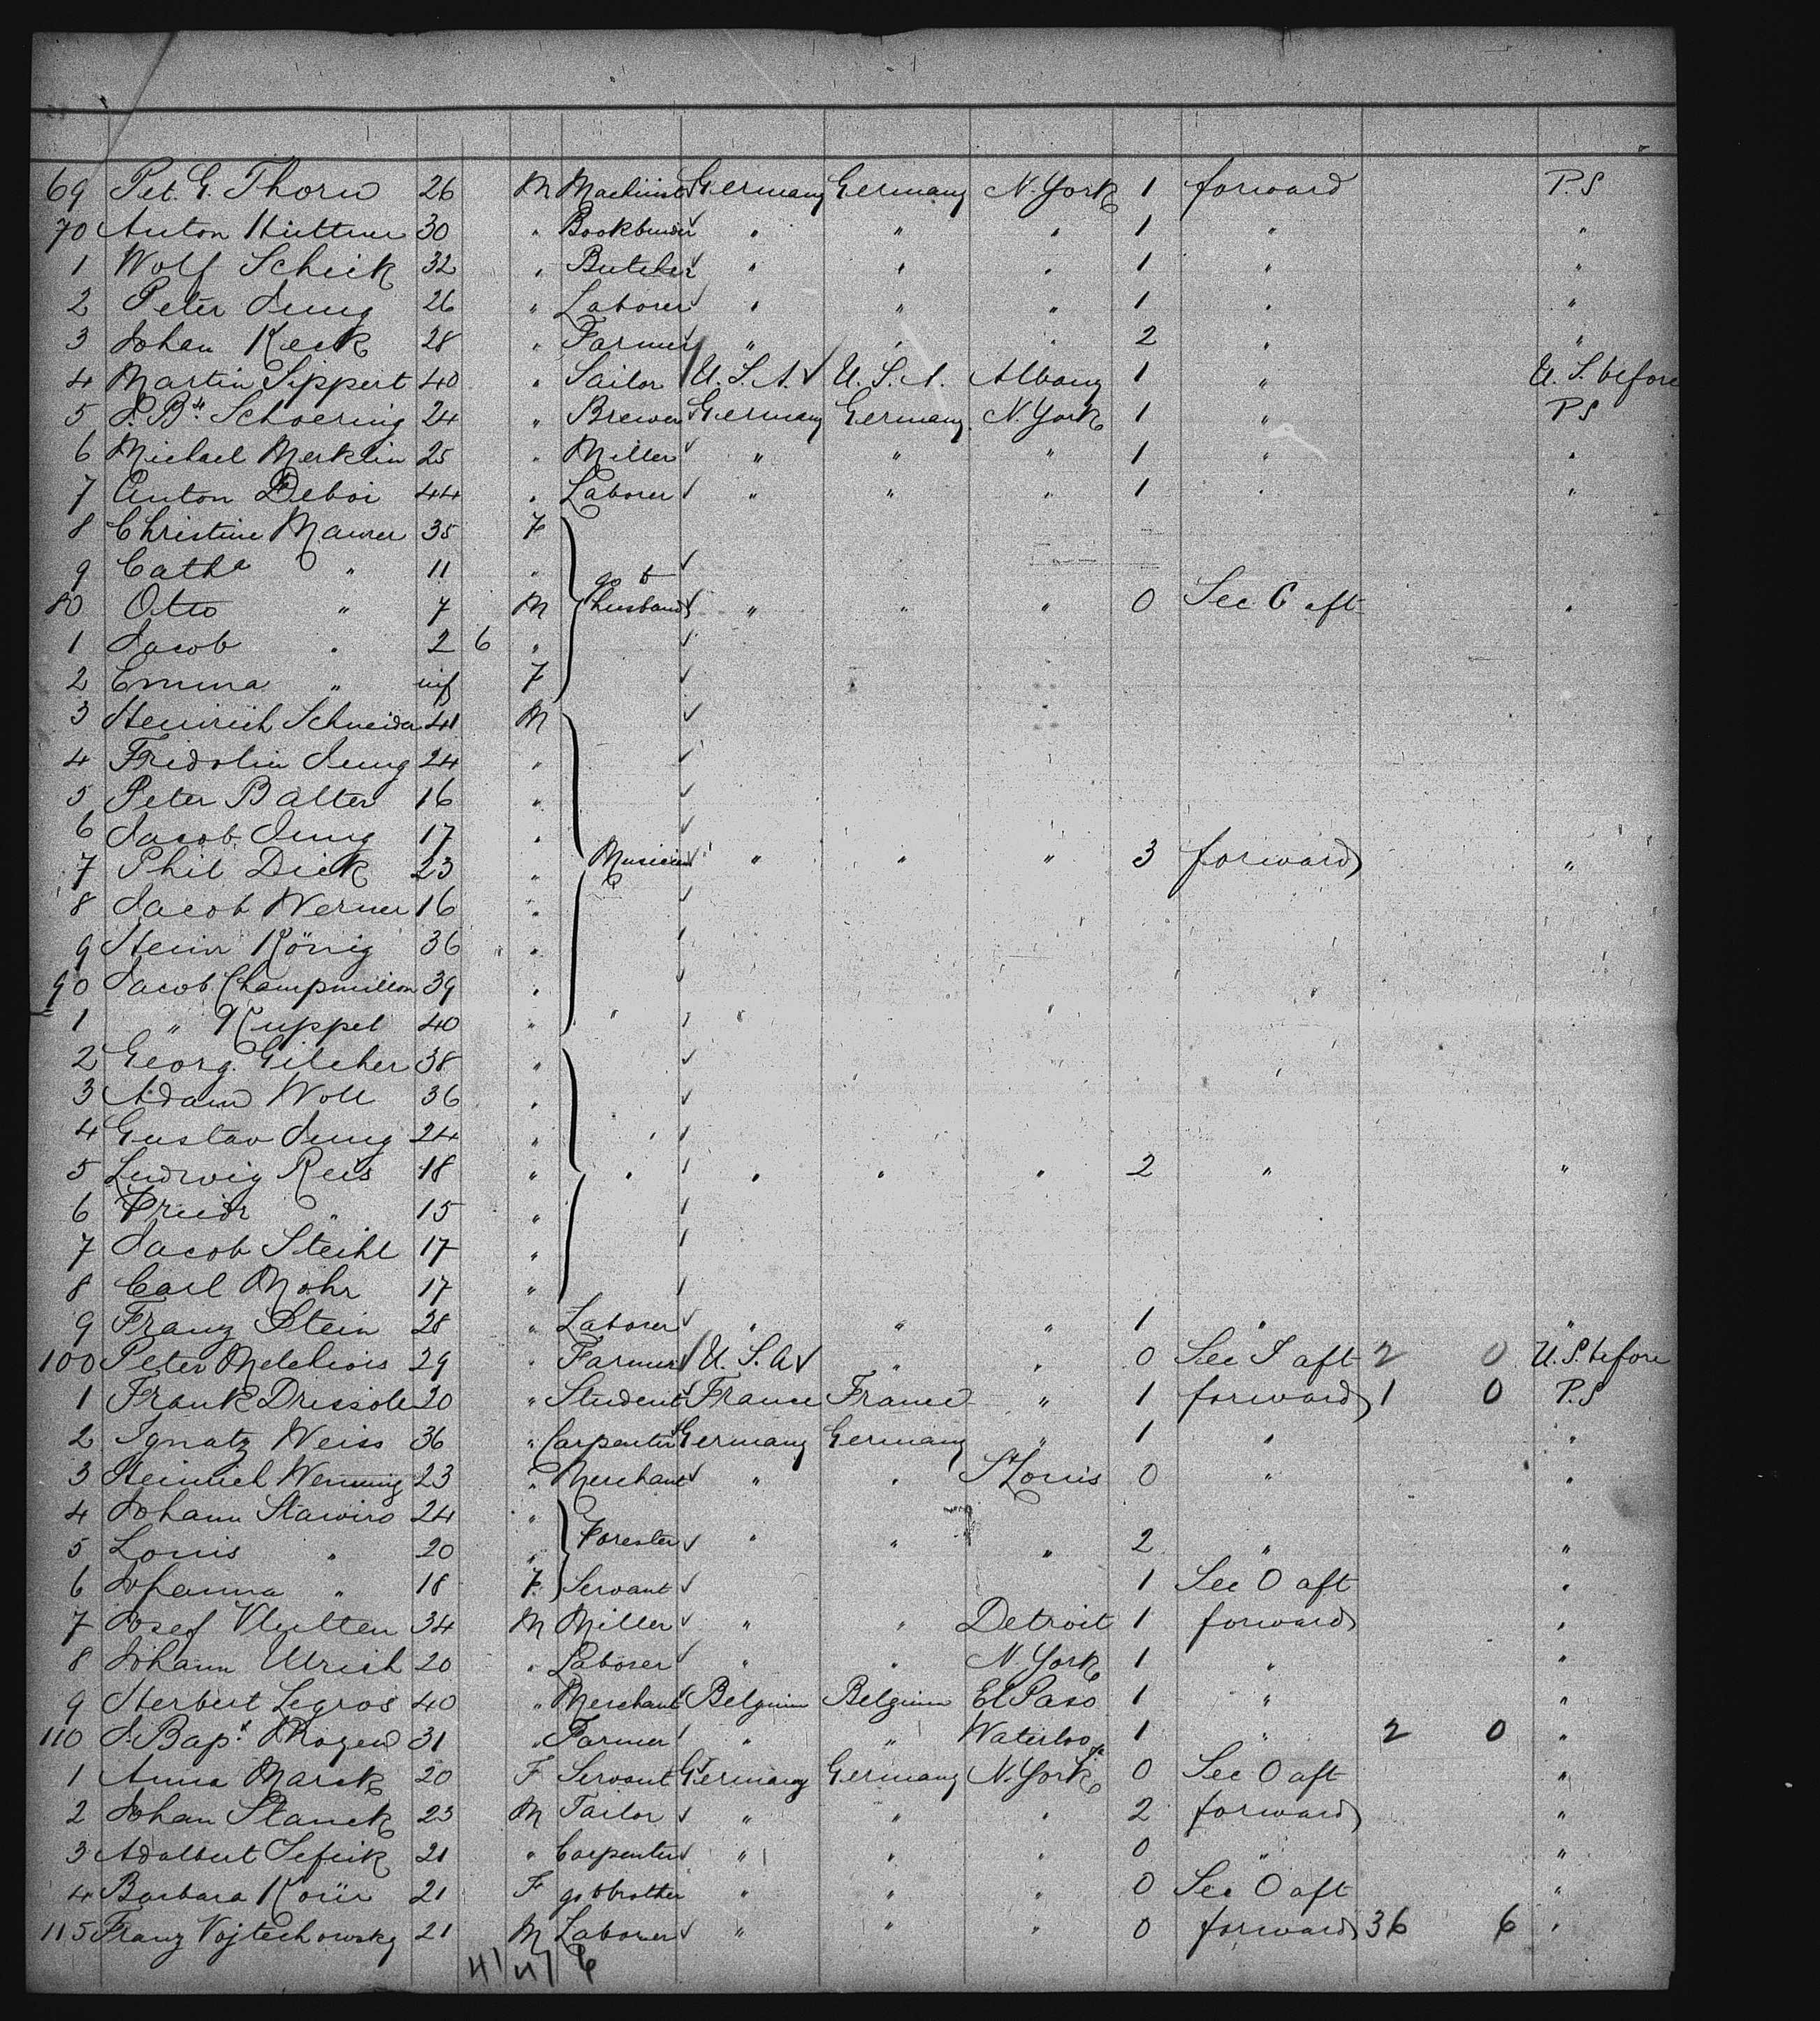 69 Pet. G. Thorn 26 M Machinist Germany Germany N. York 1 forward P.S
70 Anton Hüttner 30 " Bookbinder " " " 1 " "
1 Wolf Scheik 32 " Butcher " " " 1 " "
2 Peter Jung 26 " Laborer " " " 1 " "
3 Johan Keck 28 " Farmer " " " 2 " "
4 Martin Sippert 40 " Sailor U.S.A. U.S.A. Albany 1 " U.S. before
5 Schoering 24 " Brewer Germany Germany N. York 1 " P.S
6 Michael Merklin 25 " Miller " " " 1 " "
7 Anton Deboi 44 " Laborer " " " 1 " "
8 Christine Maurer 35 F
9 Catha " 11 "
80 Otto " 7 M go to husband " " " 0 See C aft "
1 Jacob " 2 6 "
2 Emma " inf F
3 Heinrich Schneider 41 M
4 Fridolin Jung 24 "
5 Peter Balter 16 "
6 Jacob Jung 17 "
7 Phil Dick 23 " Musician " " " 3 forward "
8 Jacob Werner 16 "
9 Heinr König 36 "
90 Jacob Champmillon 39 "
1 " Kuppel 40 "
2 Georg Gilcher 38 "
3 Adam Woll 36 "
4 Gustav Jung 24 "
5 Ludwig Reis 18 " " " " " 2 " "
6 Friedr " 15 "
7 Jacob Steihl 17 "
8 Carl Mohr 17 "
9 Franz Stein 28 " Laborer " " " 1 " "
100 Peter Melchiors 29 " Farmer U.S.A " " 0 See I aft 2 0 U.S. before
1 Frank Drissole 20 " Student France France " 1 forward 1 0 P.S
2 Ignatz Weiss 36 " Carpenter Germany Germany " 1 " "
3 Heinrich Wenning 23 " Merchant " " St Louis 0 " "
4 Johann Stawiro 24 "
5 Louis " 20 " Forester " " " 2 " "
6 Johanna " 18 F Servant 1 See O aft "
7 Josef Vlutten 34 M Miller " " Detroit 1 forward "
8 Johann Ulrich 20 " Laborer " " N. York 1 " "
9 Herbert Legros 40 " Merchant Belgium Belgium El Paso 1 " "
110 J. Bapt Mozen 31 " Farmer " " Waterloo 1 " 2 0 "
1 Anna Marek 20 F Servant Germany Germany N. York 0 See O aft "
2 Johan Stanek 23 M Tailor " " " 2 forward "
3 Adalbert Sefcik 21 " Carpenter " " " 0 " "
4 Barbara 21 F go to brother " " " 0 See O aft "
115 Franz Vojtechowsky 21 M Laborer " " " 0 forward 36 6 "